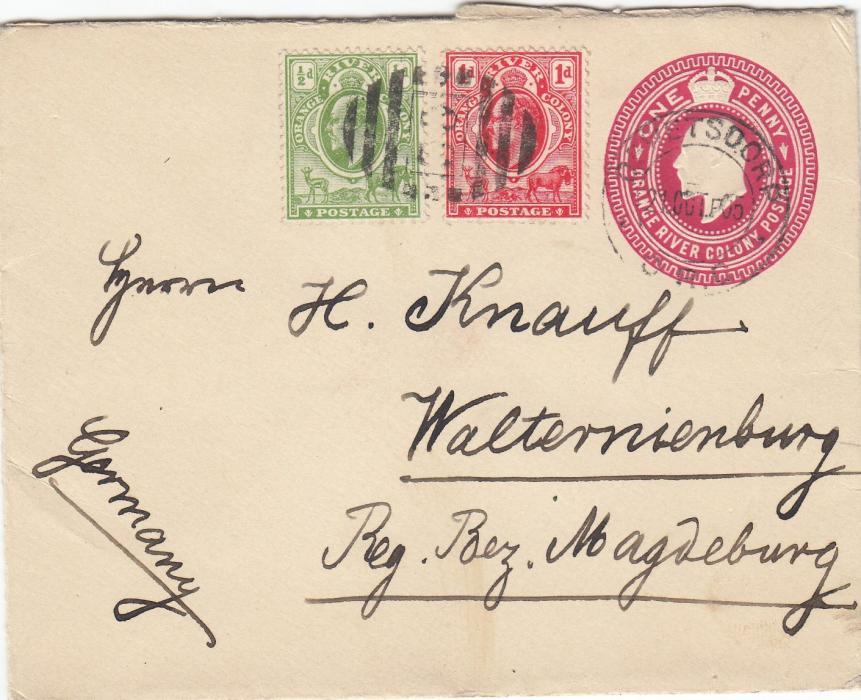 ½d ½d
ORANGE RIVER COLONY
POSTAGE
1d 1d
ORANGE RIVER COLONY
POSTAGE
ONE PENNY
ORANGE RIVER COLONY POSTAGE
OCT 05
Herrn H. Knauff
Walternienburg
Reg. Bez. Magdeburg
Germany